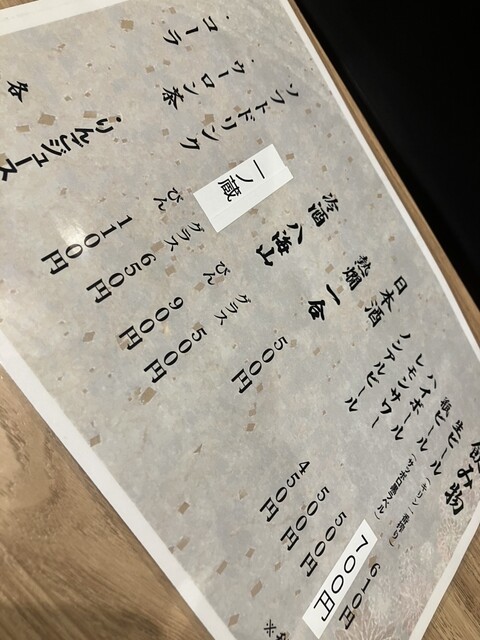 飲み物
生ビール（キリン一番搾り）６１０円
瓶ビール（サッポロ黒ラベル）７００円
ハイボール ５００円
レモンサワー ５００円
ノンアルビール ４５０円
日本酒
熱燗 一合 ５００円
冷酒 八海山 グラス ５００円
びん ９００円
一ノ蔵 グラス ６５０円
びん １１００円
ソフトドリンク
・ウーロン茶
・コーラ
・りんごジュース
各
※